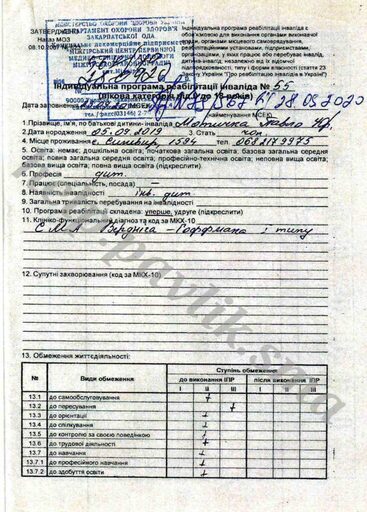 ЗАТВЕРДЖЕНО
Наказ МОЗ
08.10.
МІНІСТЕРСТВО ОХОРОНИ ЗДОРОВ'Я
ДЕПАРТАМЕНТ ОХОРОНИ ЗДОРОВ'Я
ЗАКАРПАТСЬКА ОДА
Індивідуальна програма реабілітації інваліда є
обов'язковою для виконання органами виконавчої
влади, органами місцевого самоврядування,
реабілітаційними установами, підприємствами,
організаціями, у яких працює або перебуває інвалід,
дитина-інвалід, незалежно від їх відомчої
підпорядкованості, типу і форми власності (стаття 23
Закону України "Про реабілітацію інвалідів в Україні")
Індивідуальна програма реабілітації інваліда № 55
(вікова категорія від 0 до 18 років)
Дата заповнення 28.05.2020
найменування МСЕК
1. Прізвище, ім'я, по батькові дитини-інваліда Павло Юр.
2. Дата народження 05.09.2019 3. Стать чол
4. Місце проживання с. Синевир 1594 тел. 0682179975
5. Освіта: немає; дошкільна освіта; початкова загальна освіта; базова загальна середня
освіта; повна загальна середня освіта; професійно-технічна освіта; неповна вища освіта;
базова вища освіта; вища освіта (підкреслити).
6. Професія дит.
7. Працює (спеціальність, посада) —
8. Наявність інвалідності інв. дит.
9. Загальна тривалість перебування на інвалідності
10. Програма реабілітації складена: уперше, удруге (підкреслити)
11. Клініко-функціональний діагноз та код за МКХ-10
СМА Вердніга – Гоффмана 1 типу
12. Супутні захворювання (код за МКХ-10)
13. Обмеження життєдіяльності:
№ Види обмеження Ступінь обмеження
до виконання ІПР після виконання ІПР
І ІІ ІІІ І ІІ ІІІ
13.1 до самообслуговування +
13.2 до пересування +
13.3 до орієнтації +
13.4 до спілкування +
13.5 до контролю за своєю поведінкою +
13.6 до трудової діяльності +
13.7 до навчання +
13.7.1 до професійного навчання +
13.7.2 до здобуття освіти +
help.pavlik.sma